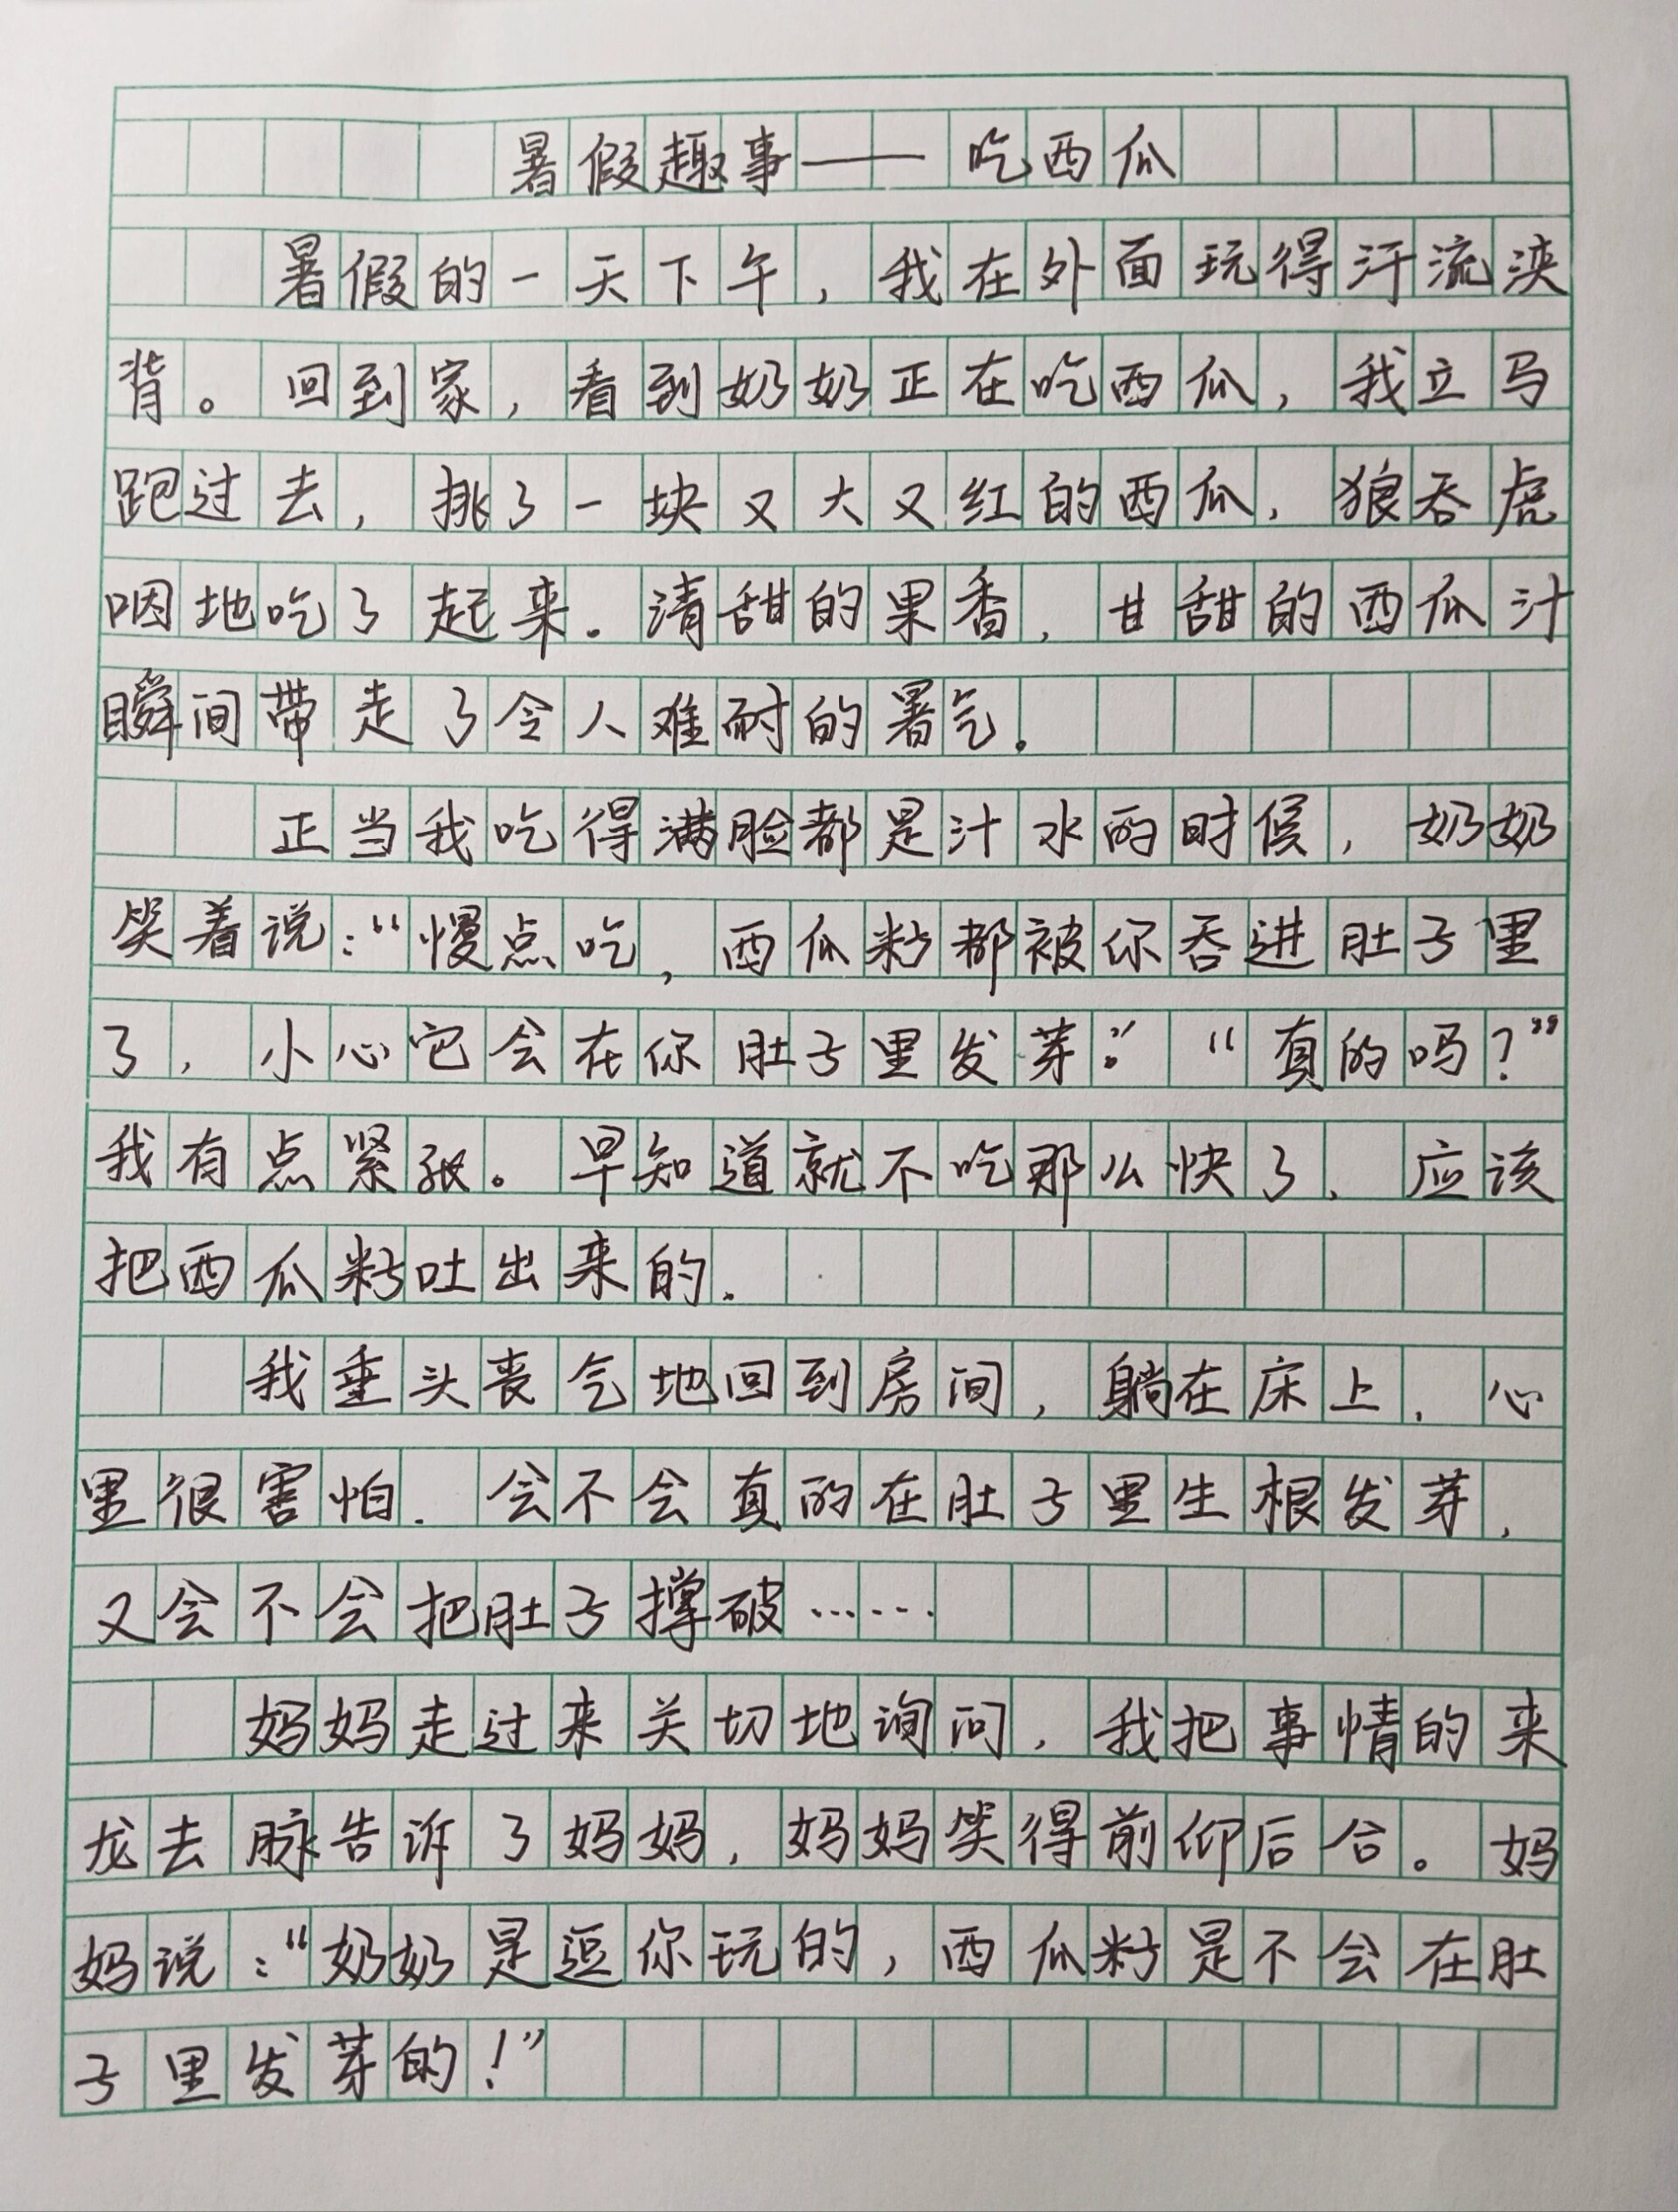 暑假趣事——吃西瓜
暑假的一天下午，我在外面玩得汗流浃
背。回到家，看到奶奶正在吃西瓜，我立马
跑过去，挑了一块又大又红的西瓜，狼吞虎
咽地吃了起来。清甜的果香，甘甜的西瓜汁
瞬间带走了令人难耐的暑气。
正当我吃得满脸都是汁水的时候，奶奶
笑着说：“慢点吃，西瓜籽都被你吞进肚子里
了，小心它会在你肚子里发芽。”“真的吗？”
我有点紧张。早知道就不吃那么快了，应该
把西瓜籽吐出来的.
我垂头丧气地回到房间，躺在床上，心
里很害怕.会不会真的在肚子里生根发芽，
又会不会把肚子撑破……
妈妈走过来关切地询问，我把事情的来
龙去脉告诉了妈妈，妈妈笑得前仰后合。妈
妈说：“奶奶是逗你玩的，西瓜籽是不会在肚
子里发芽的！”